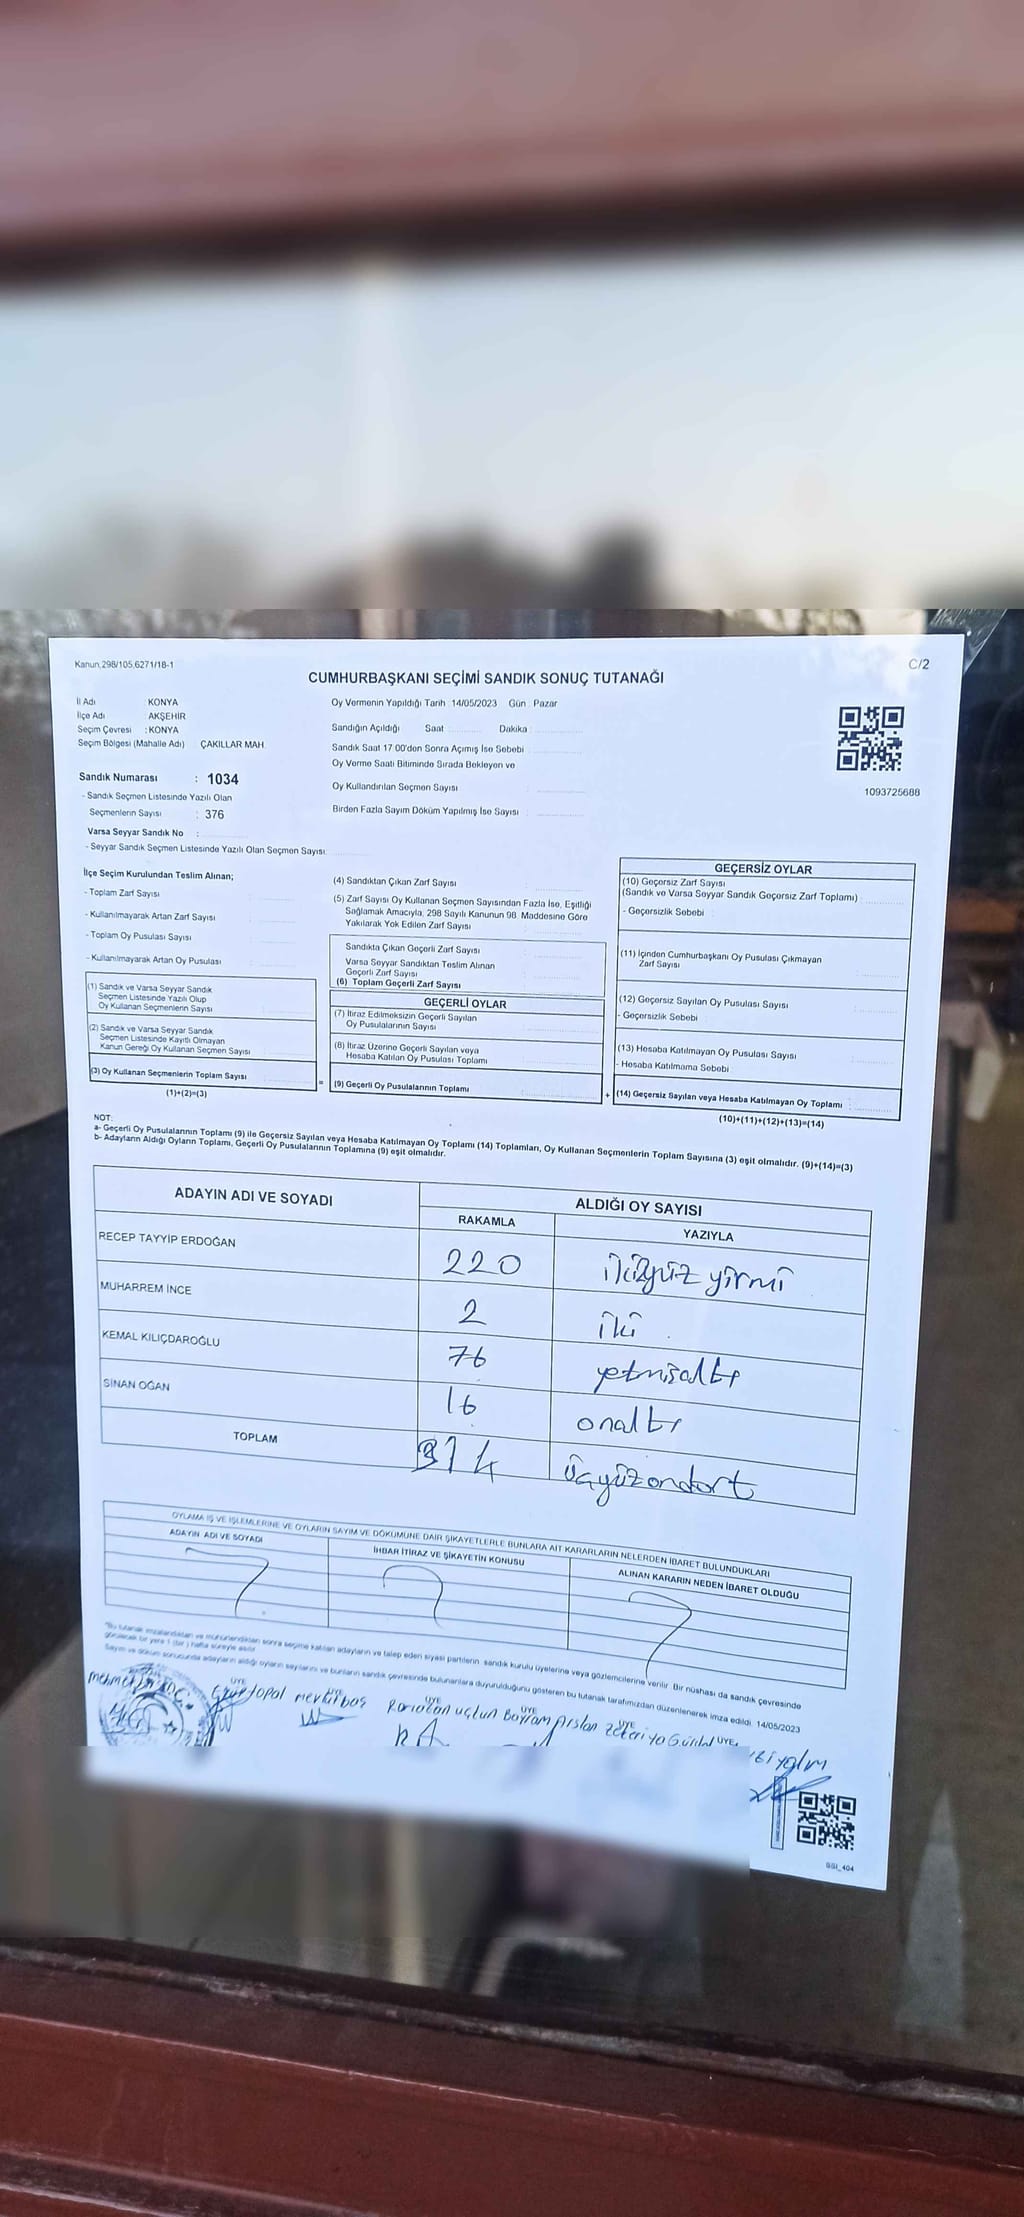 Kanun,298/105,6271/18-1
C/2
CUMHURBAŞKANI SEÇİMİ SANDIK SONUÇ TUTANAĞI
İl Adı KONYA
İlçe Adı AKŞEHİR
Seçim Çevresi : KONYA
Seçim Bölgesi (Mahalle Adı) ÇAKILLAR MAH.
Sandık Numarası : 1034
- Sandık Seçmen Listesinde Yazılı Olan
Seçmenlerin Sayısı : 376
Varsa Seyyar Sandık No :
- Seyyar Sandık Seçmen Listesinde Yazılı Olan Seçmen Sayısı:
Oy Vermenin Yapıldığı Tarih 14/05/2023 Gün : Pazar
Sandığın Açıldığı Saat Dakika :
Sandık Saat 17 00'den Sonra Açımış İse Sebebi
Oy Verme Saati Bitiminde Sırada Bekleyen ve
Oy Kullandırılan Seçmen Sayısı
Birden Fazla Sayım Döküm Yapılmış İse Sayısı
1093725688
İlçe Seçim Kurulundan Teslim Alınan;
- Toplam Zarf Sayısı
- Kullanılmayarak Artan Zarf Sayısı
- Toplam Oy Pusulası Sayısı
- Kullanılmayarak Artan Oy Pusulası
(1) Sandık ve Varsa Seyyar Sandık
Seçmen Listesinde Yazılı Olup
Oy Kullanan Seçmenlerin Sayısı
(2) Sandık ve Varsa Seyyar Sandık
Seçmen Listesinde Kayıtlı Olmayan
Kanun Gereği Oy Kullanan Seçmen Sayısı
(3) Oy Kullanan Seçmenlerin Toplam Sayısı
(1)+(2)=(3)
=
(4) Sandıktan Çıkan Zarf Sayısı
(5) Zarf Sayısı Oy Kullanan Seçmen Sayısından Fazla İse, Eşitliği
Sağlamak Amacıyla, 298 Sayılı Kanunun 98. Maddesine Göre
Yakılarak Yok Edilen Zarf Sayısı
Sandıkta Çıkan Geçerli Zarf Sayısı
Varsa Seyyar Sandıktan Teslim Alınan
Geçerli Zarf Sayısı
(6) Toplam Geçerli Zarf Sayısı
GEÇERLİ OYLAR
(7) İtiraz Edilmeksizin Geçerli Sayılan
Oy Pusulalarının Sayısı
(8) İtiraz Üzerine Geçerli Sayılan veya
Hesaba Katılan Oy Pusulası Toplamı
(9) Geçerli Oy Pusulalarının Toplamı
+
GEÇERSİZ OYLAR
(10) Geçersiz Zarf Sayısı
(Sandık ve Varsa Seyyar Sandık Geçersiz Zarf Toplamı)
- Geçersizlik Sebebi
(11) İçinden Cumhurbaşkanı Oy Pusulası Çıkmayan
Zarf Sayısı
(12) Geçersiz Sayılan Oy Pusulası Sayısı
- Geçersizlik Sebebi
(13) Hesaba Katılmayan Oy Pusulası Sayısı
- Hesaba Katılmama Sebebi
(14) Geçersiz Sayılan veya Hesaba Katılmayan Oy Toplamı
(10)+(11)+(12)+(13)=(14)
NOT:
a- Geçerli Oy Pusulalarının Toplamı (9) ile Geçersiz Sayılan veya Hesaba Katılmayan Oy Toplamı (14) Toplamları, Oy Kullanan Seçmenlerin Toplam Sayısına (3) eşit olmalıdır. (9)+(14)=(3)
b- Adayların Aldığı Oyların Toplamı, Geçerli Oy Pusulalarının Toplamına (9) eşit olmalıdır.
ADAYIN ADI VE SOYADI
ALDIĞI OY SAYISI
RAKAMLA YAZIYLA
RECEP TAYYİP ERDOĞAN 220 ikiyüz yirmi
MUHARREM İNCE 2 iki
KEMAL KILIÇDAROĞLU 76 yetmişaltı
SİNAN OĞAN 16 onaltı
TOPLAM 314 üçyüzondört
OYLAMA İŞ VE İŞLEMLERİNE VE OYLARIN SAYIM VE DÖKÜMÜNE DAİR ŞİKAYETLERLE BUNLARA AİT KARARLARIN NELERDEN İBARET BULUNDUKLARI
ADAYIN ADI VE SOYADI
İHBAR İTİRAZ VE ŞİKAYETİN KONUSU
ALINAN KARARIN NEDEN İBARET OLDUĞU
*Bu tutanak imzalandıktan ve mühürlendikten sonra seçime katılan adayların ve talep eden siyasi partilerin sandık kurulu üyelerine veya gözlemcilerine verilir. Bir nüshası da sandık çevresinde
görülecek bir yere 1 (bir) hafta süreyle asılır.
Sayım ve döküm sonucunda adayların aldığı oyların sayılarını ve bunların sandık çevresinde bulunanlara duyurulduğunu gösteren bu tutanak tarafımızdan düzenlenerek imza edildi. 14/05/2023
ÜYE ÜYE ÜYE ÜYE ÜYE ÜYE
Topal Ramazan Uçkun Bayram Arslan Zekeriya
GSI_404